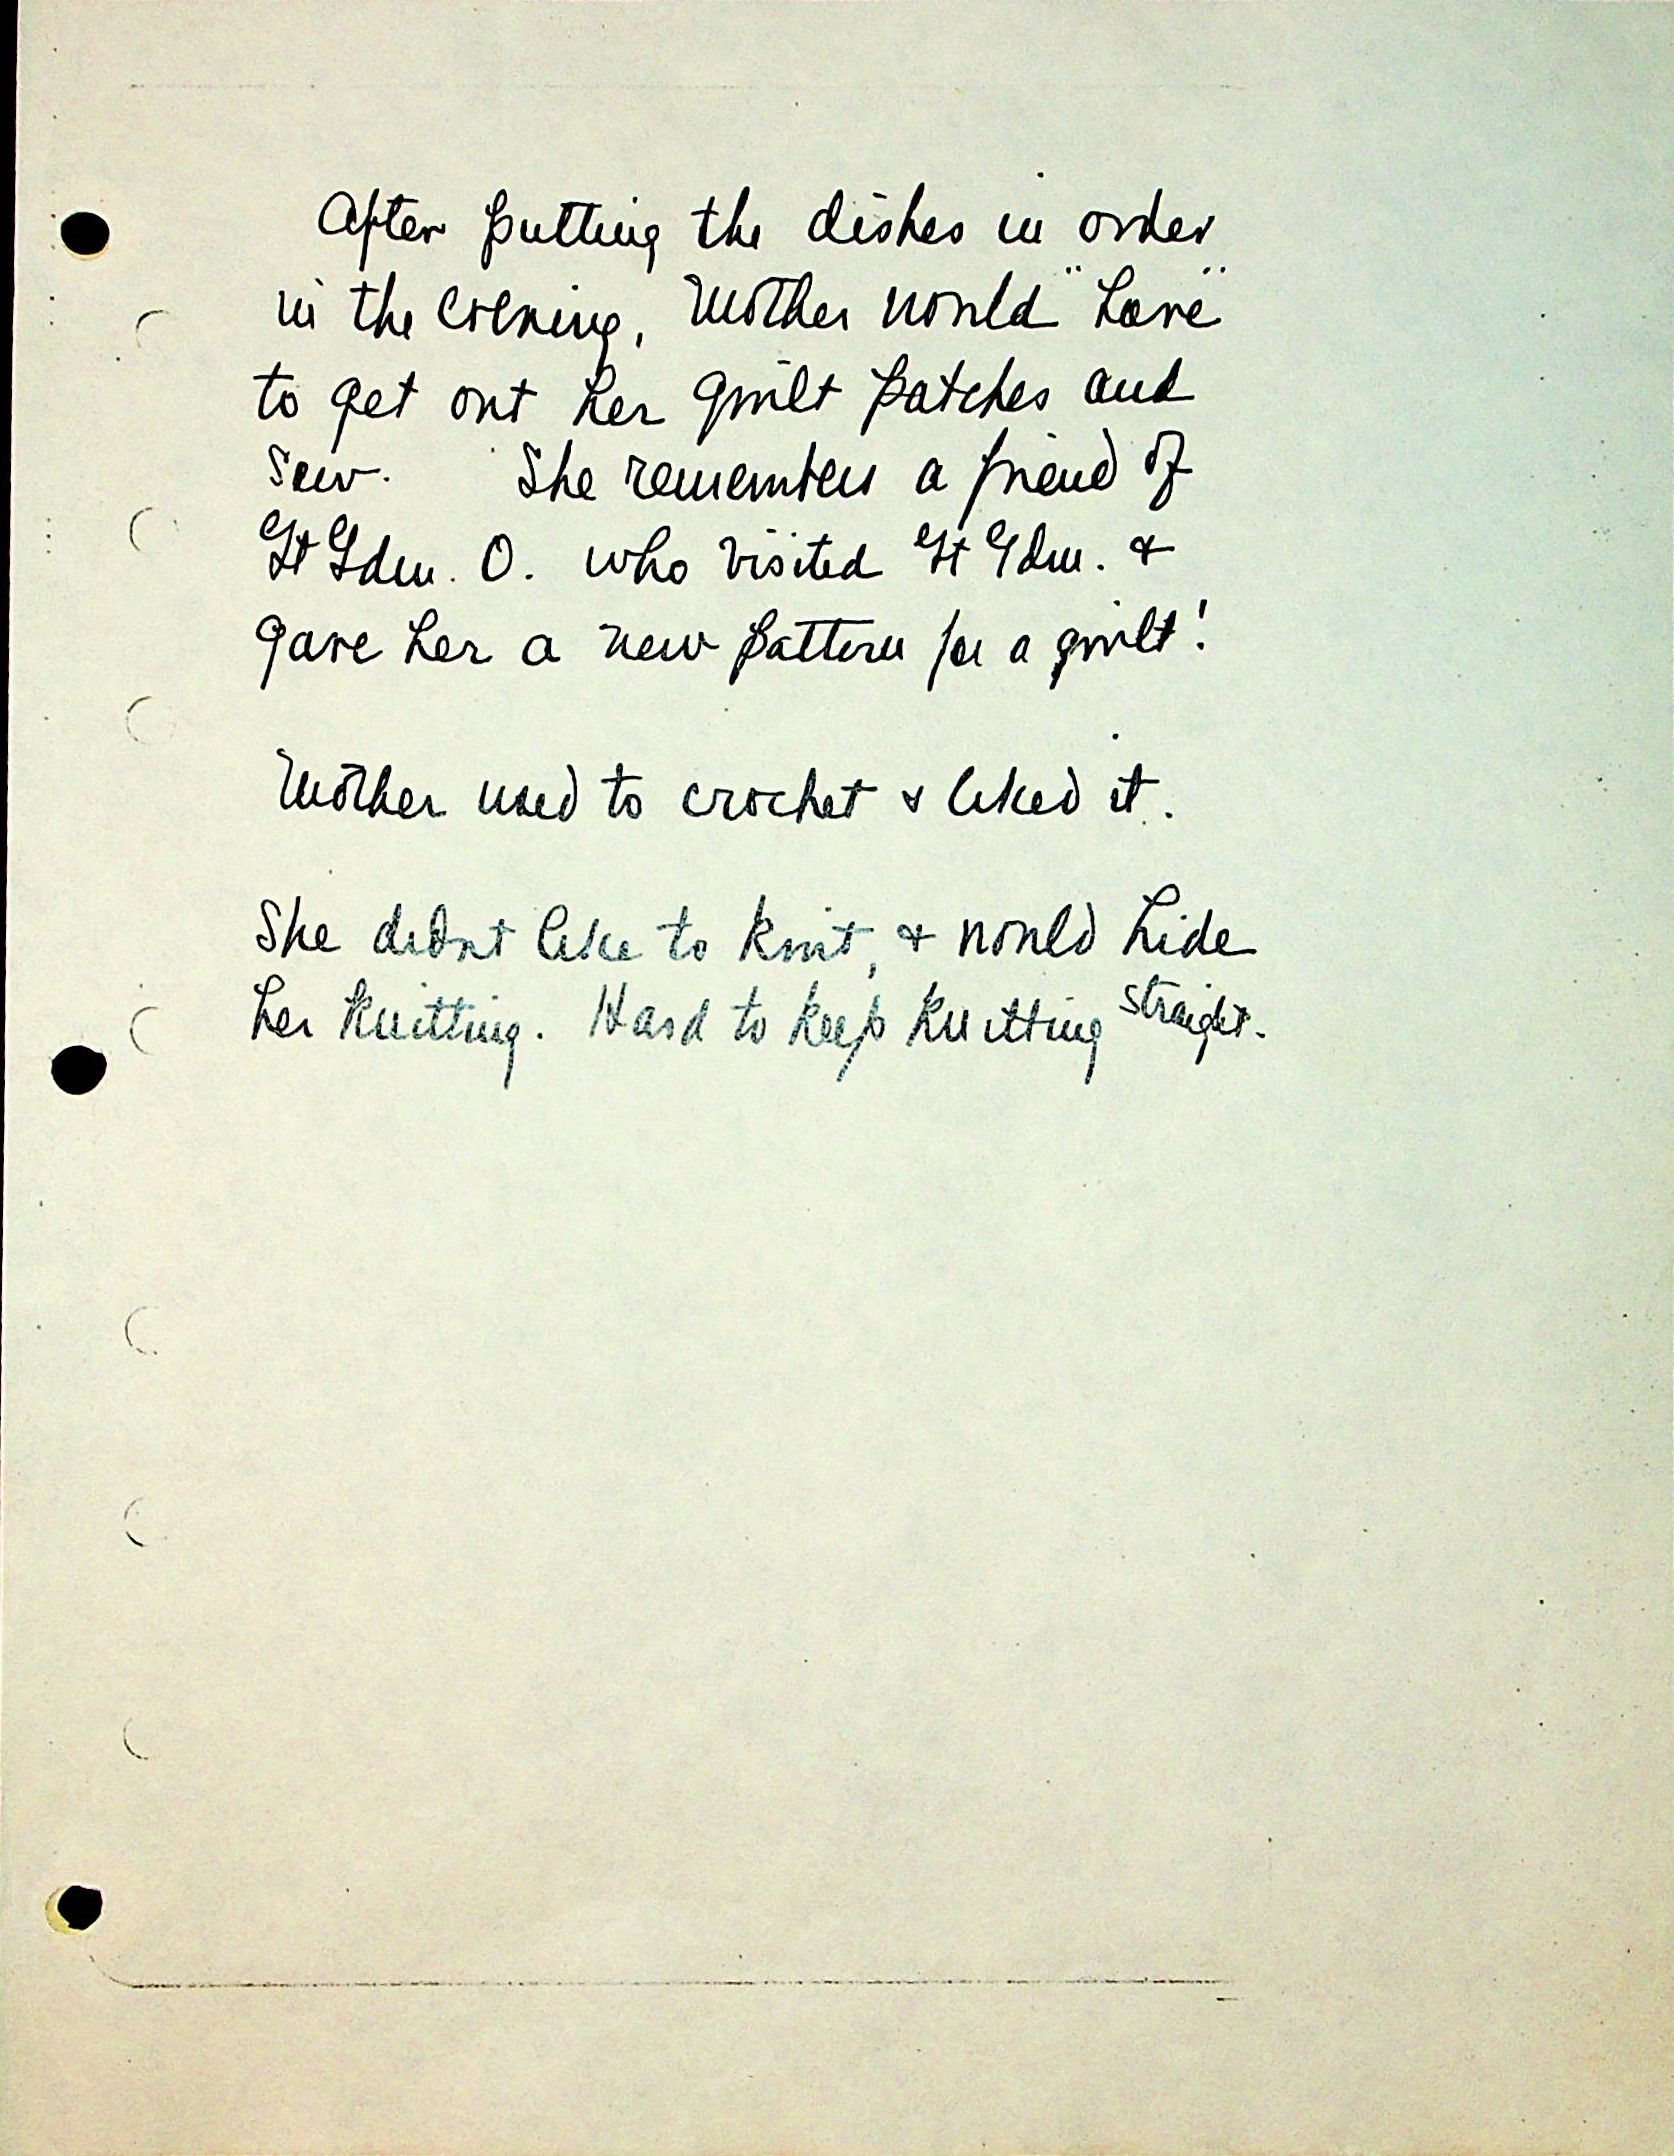 After putting the dishes in order
in the evening, Mother would "have"
to get out her quilt patches and
sew. She remembers a friend of
Gt Gdm. O. who visited Gt Gdm. &
gave her a new pattern for a quilt!
Mother used to crochet & liked it.
She didnt like to knit, & would hide
her knitting. Hard to keep knitting straight.